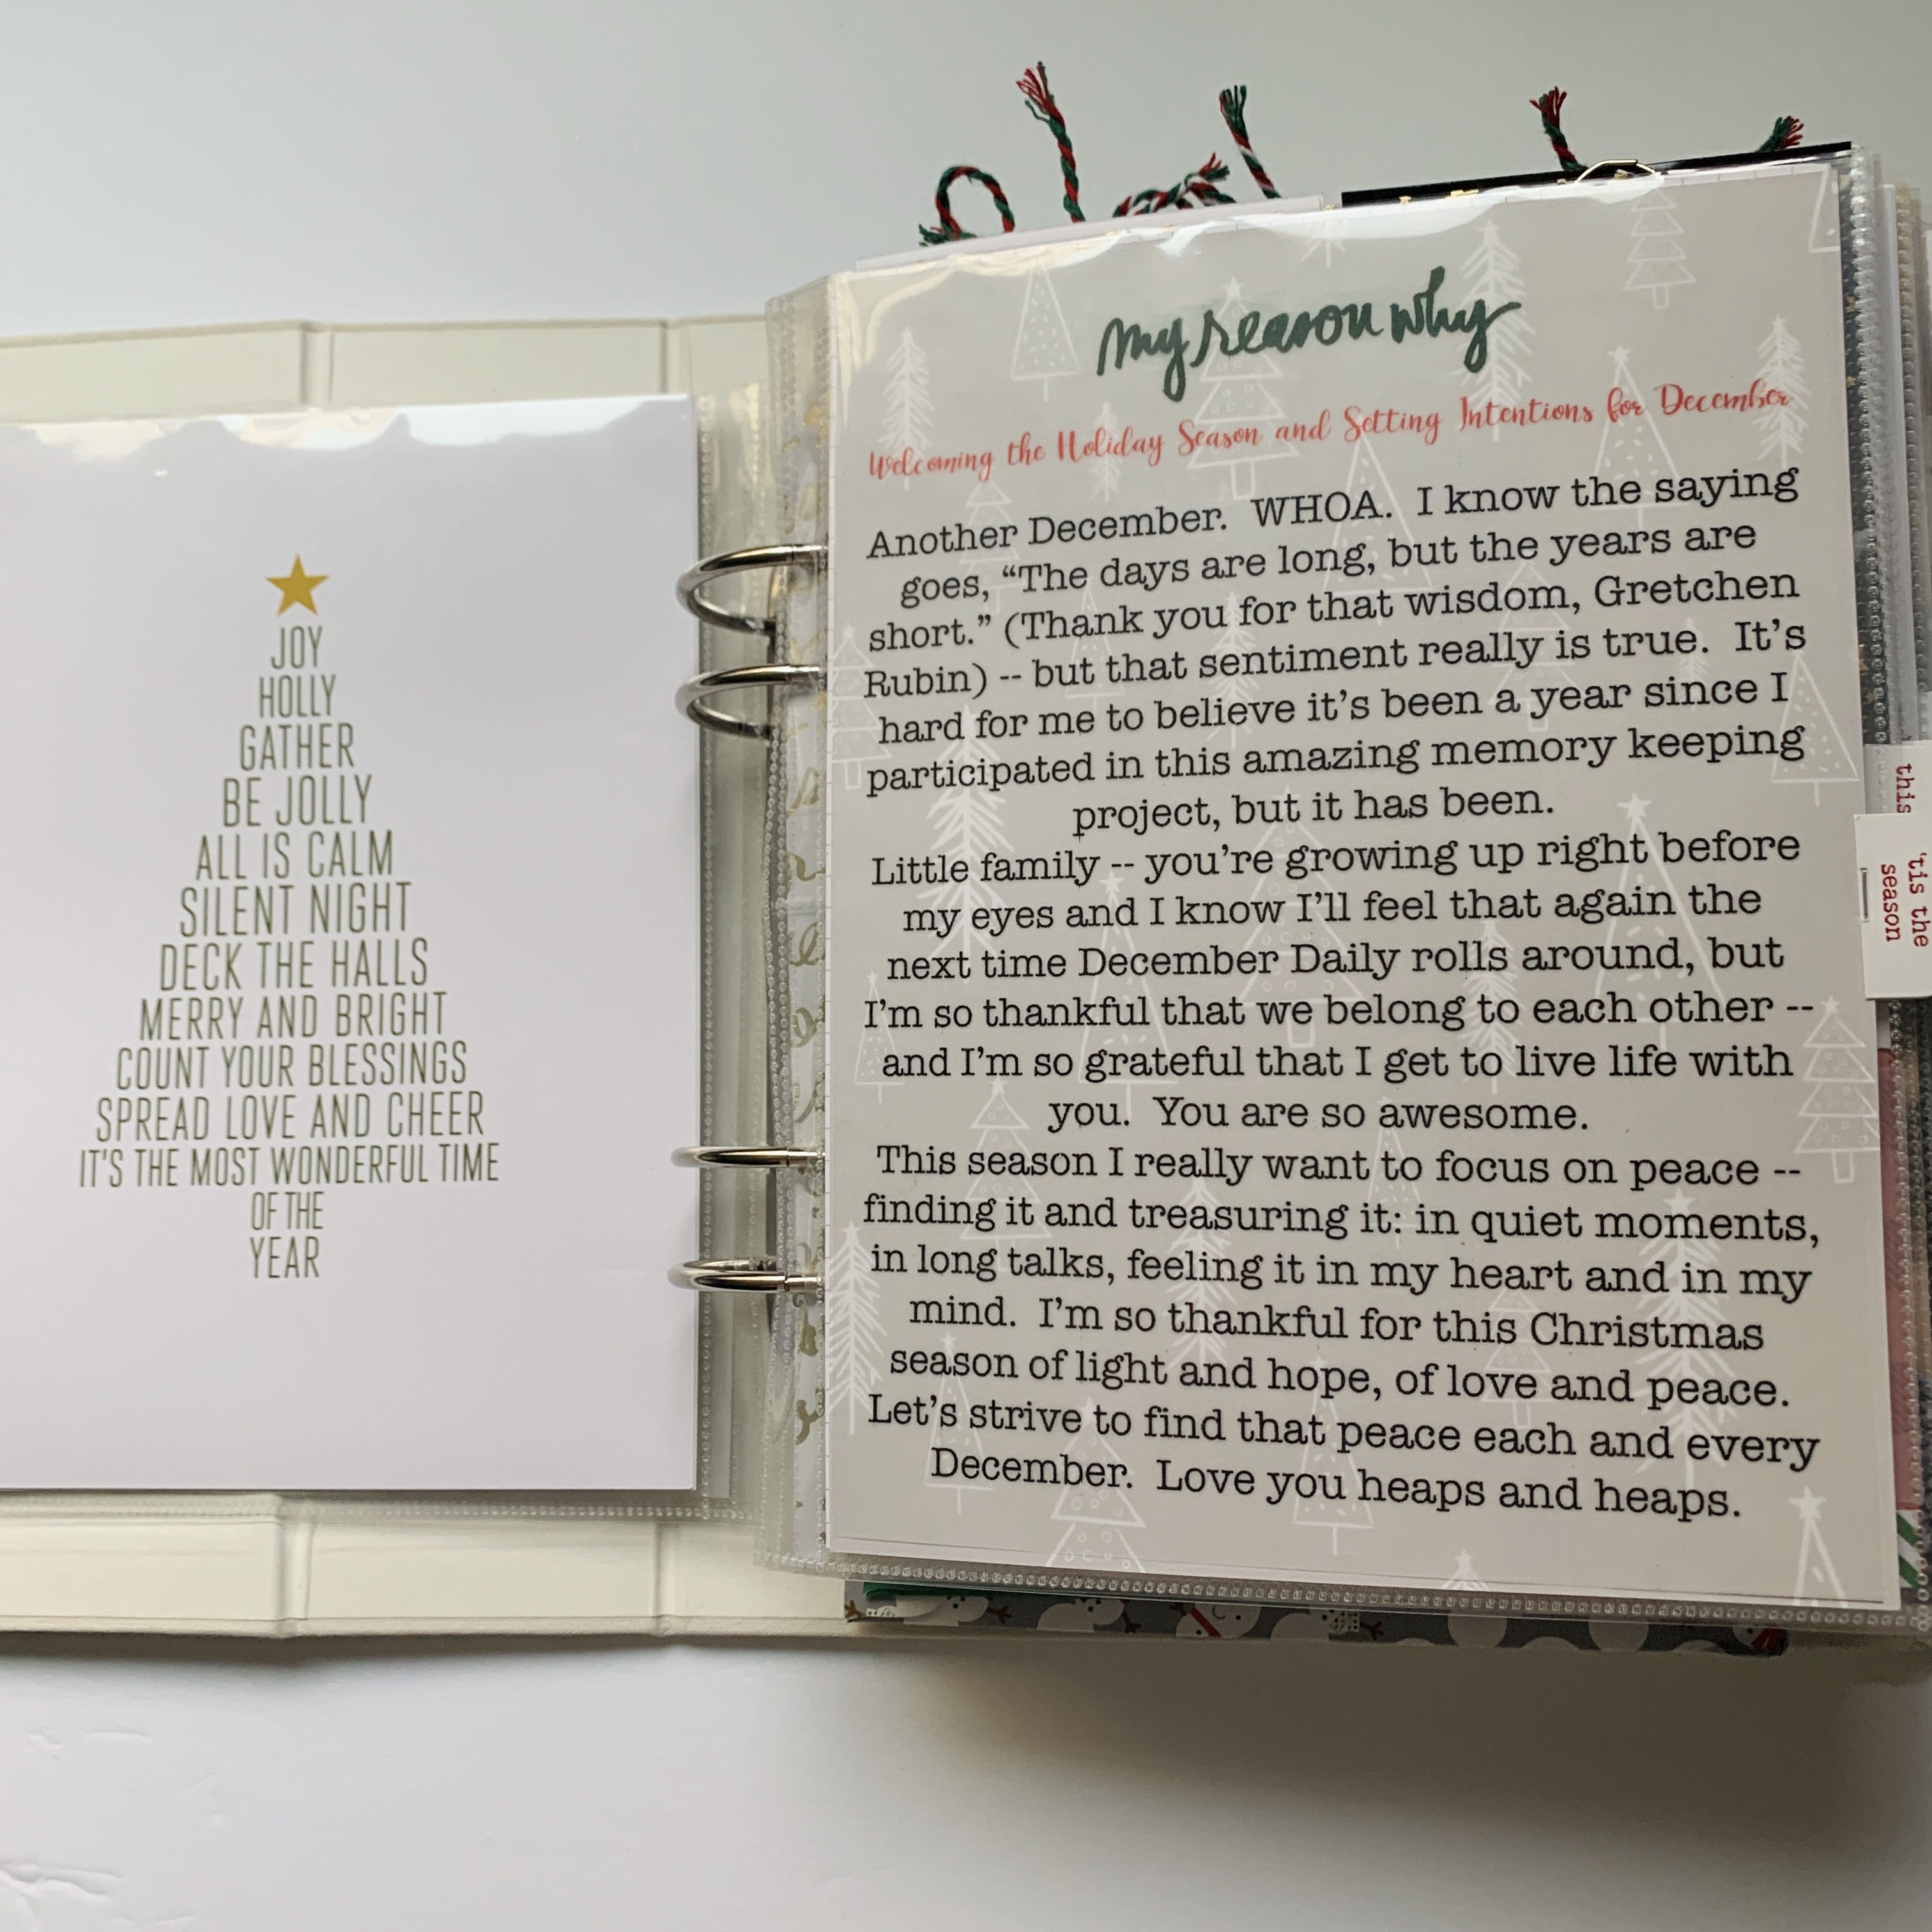 JOY
HOLLY
GATHER
BE JOLLY
ALL IS CALM
SILENT NIGHT
DECK THE HALLS
MERRY AND BRIGHT
COUNT YOUR BLESSINGS
SPREAD LOVE AND CHEER
IT'S THE MOST WONDERFUL TIME
OF THE
YEAR
my reason why
Welcoming the Holiday Season and Setting Intentions for December
Another December.  WHOA.  I know the saying
goes, “The days are long, but the years are
short.” (Thank you for that wisdom, Gretchen
Rubin) -- but that sentiment really is true.  It’s
hard for me to believe it’s been a year since I
participated in this amazing memory keeping
project, but it has been.
Little family -- you’re growing up right before
my eyes and I know I’ll feel that again the
next time December Daily rolls around, but
I’m so thankful that we belong to each other --
and I’m so grateful that I get to live life with
you.  You are so awesome.
This season I really want to focus on peace --
finding it and treasuring it: in quiet moments,
in long talks, feeling it in my heart and in my
mind.  I’m so thankful for this Christmas
season of light and hope, of love and peace.
Let’s strive to find that peace each and every
December.  Love you heaps and heaps.
this
'tis the
season